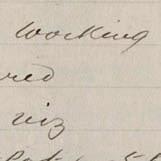 working
red
viz